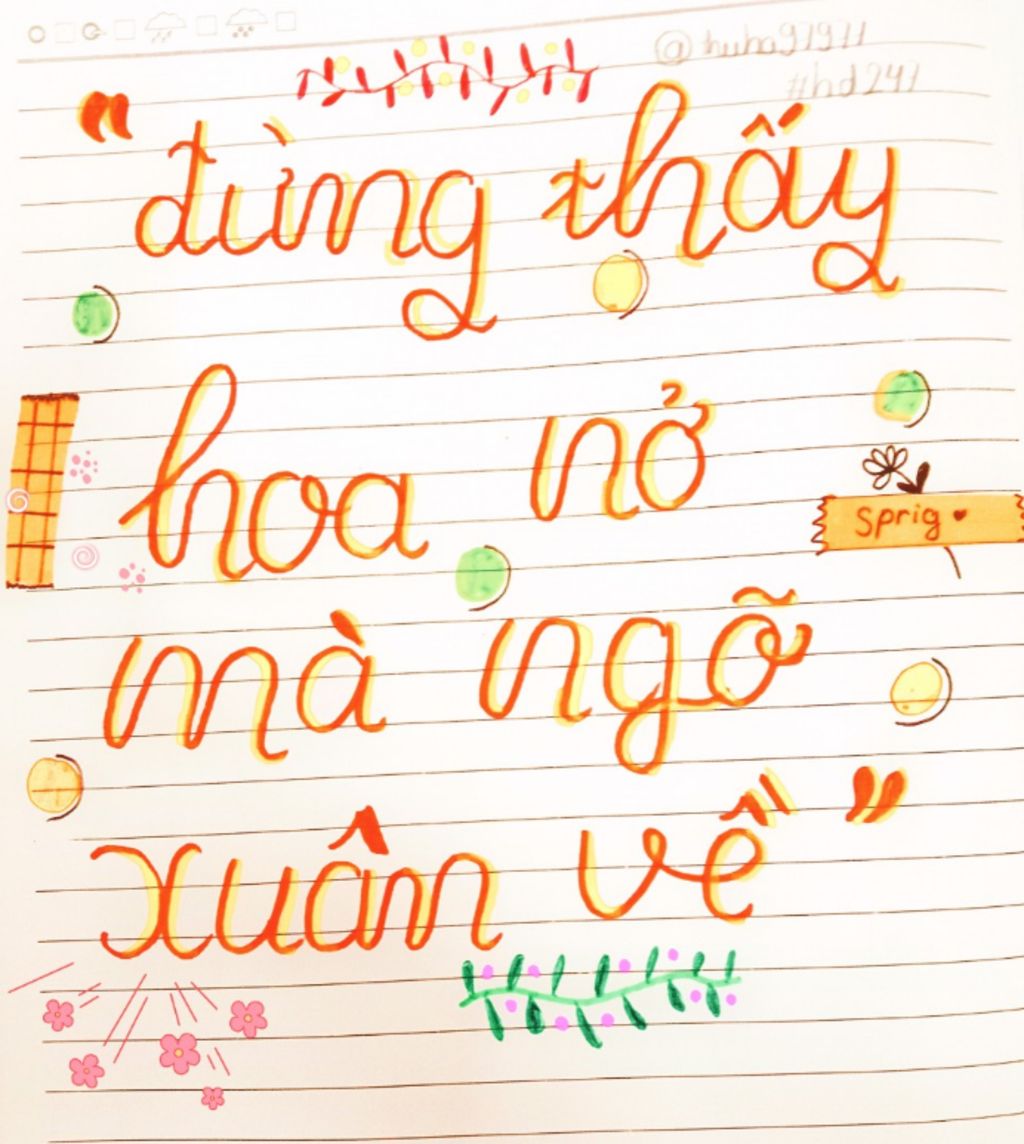 #hd247
"đừng thấy
hoa nở
Sprig
mà ngỡ
xuân về"